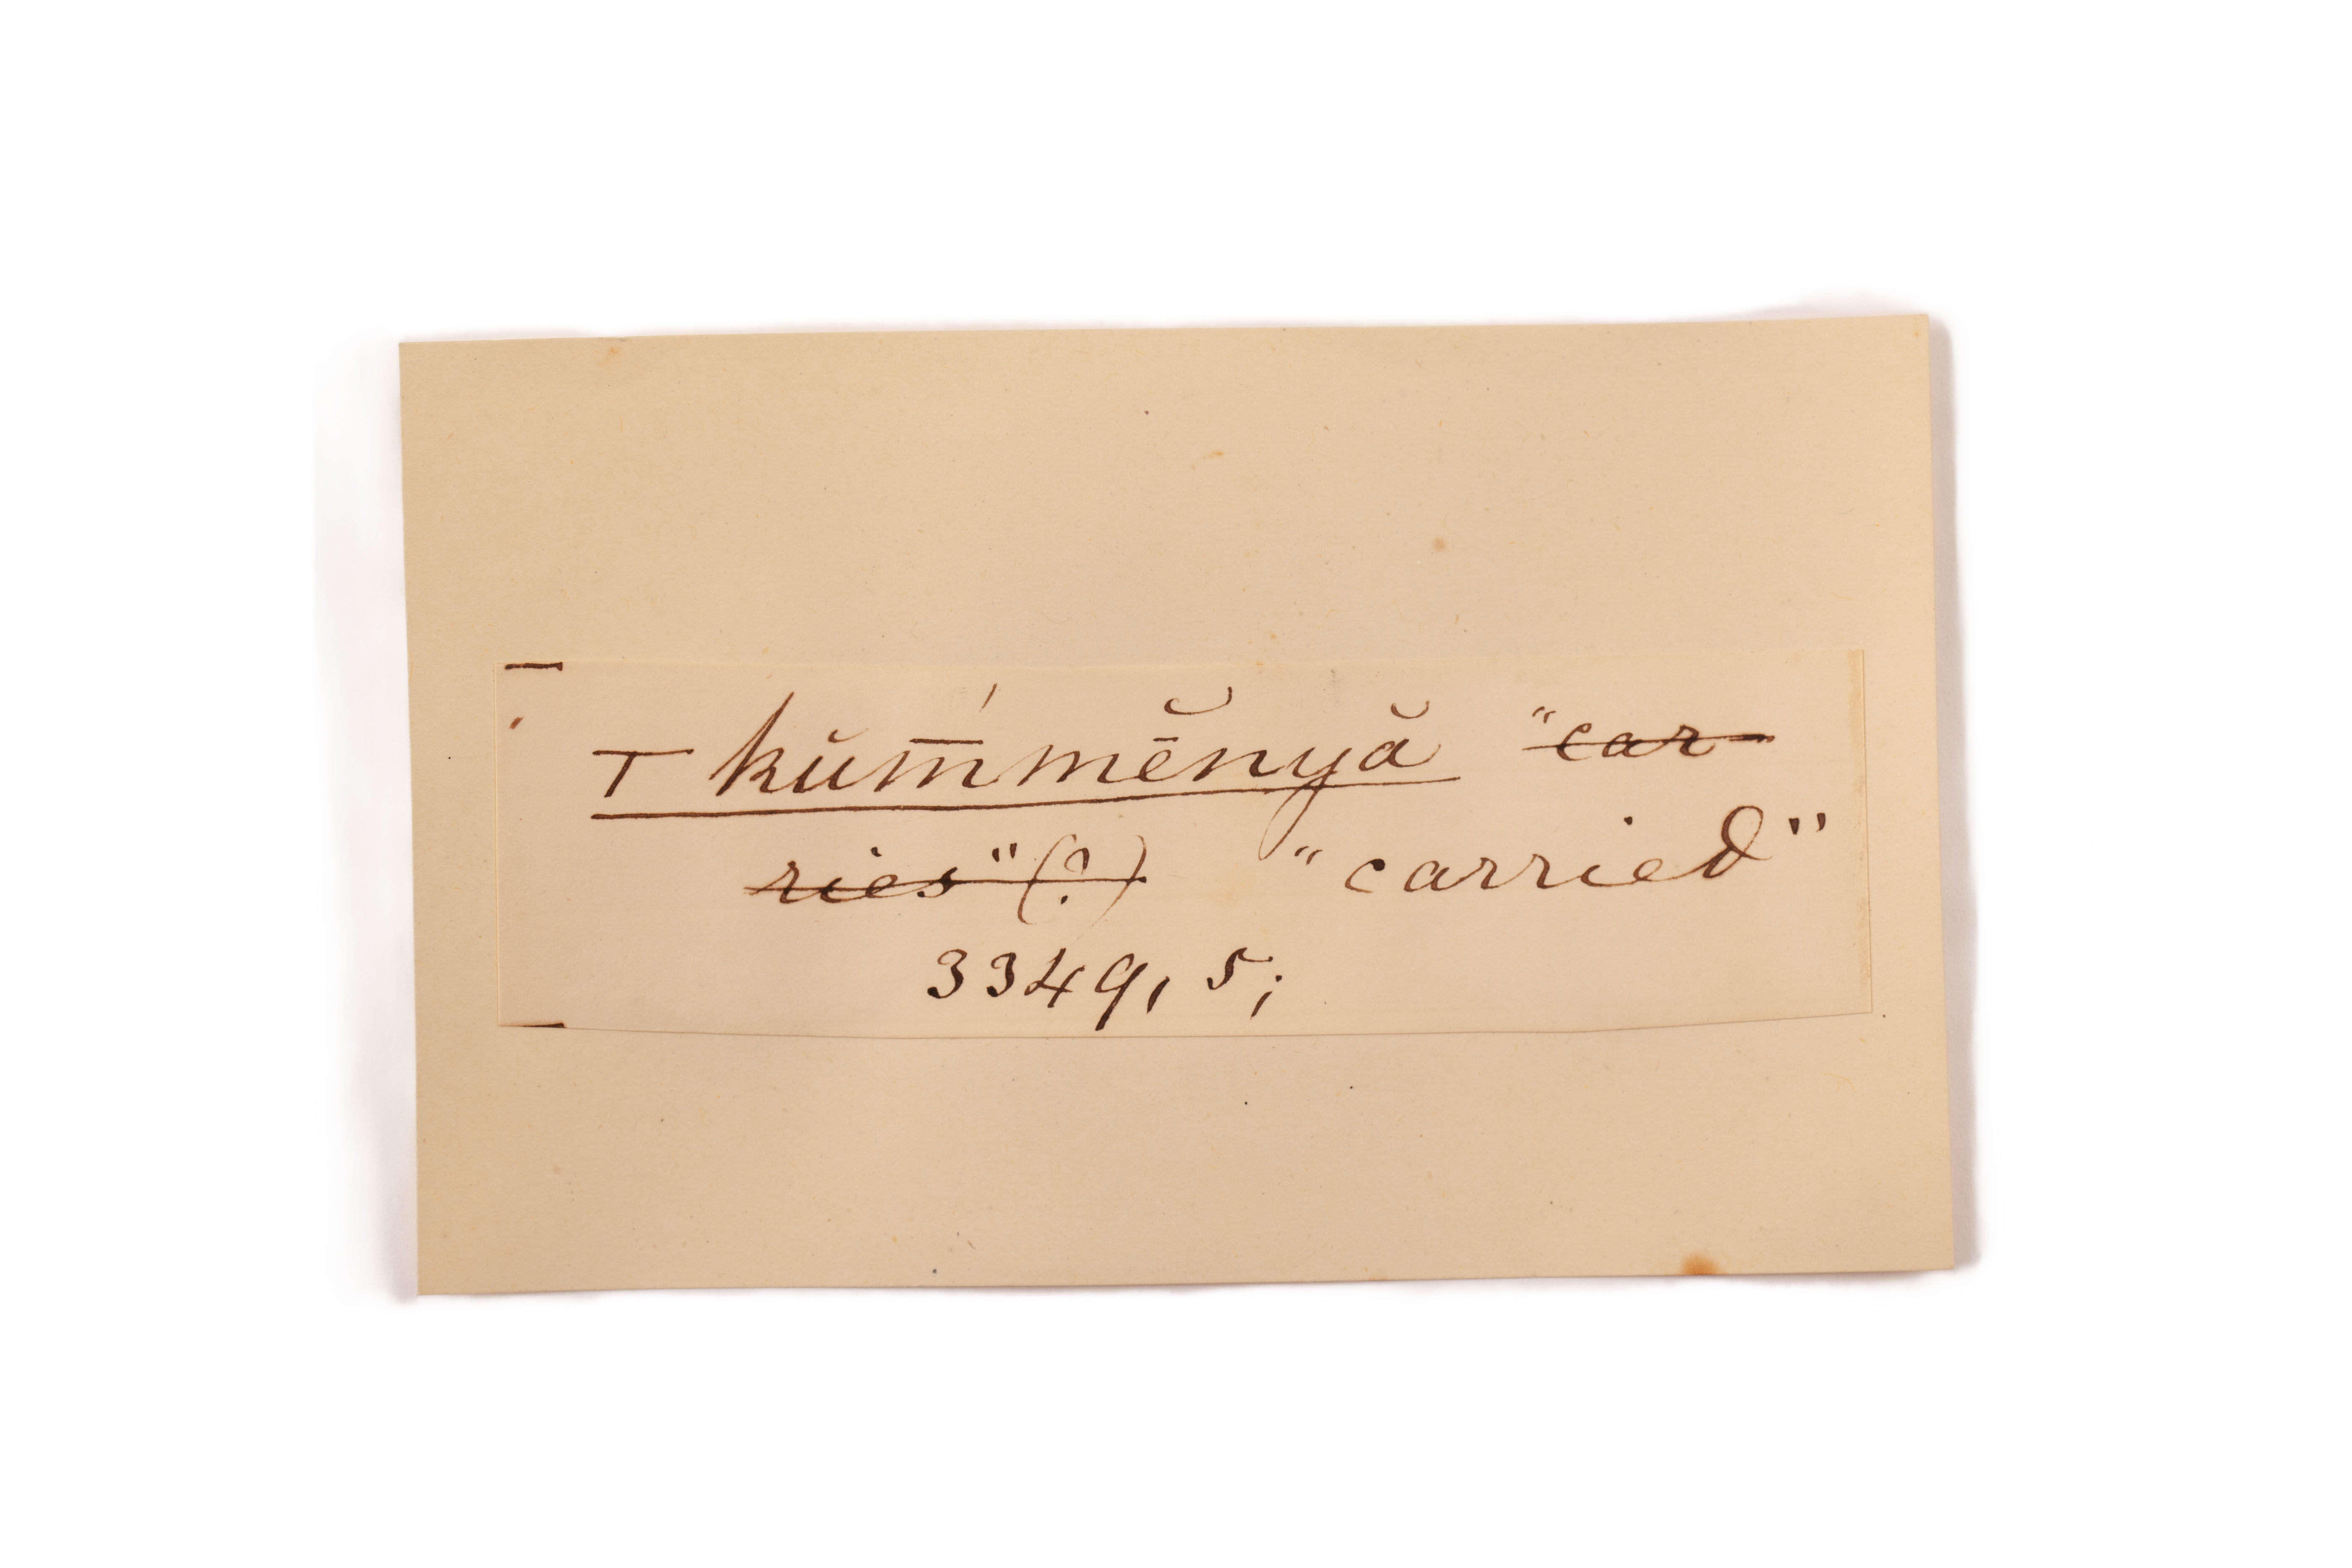 T kŭm̅´mē̆nyă ~~"car-~~
~~ries" (?)~~ "carried"
3349, 5;